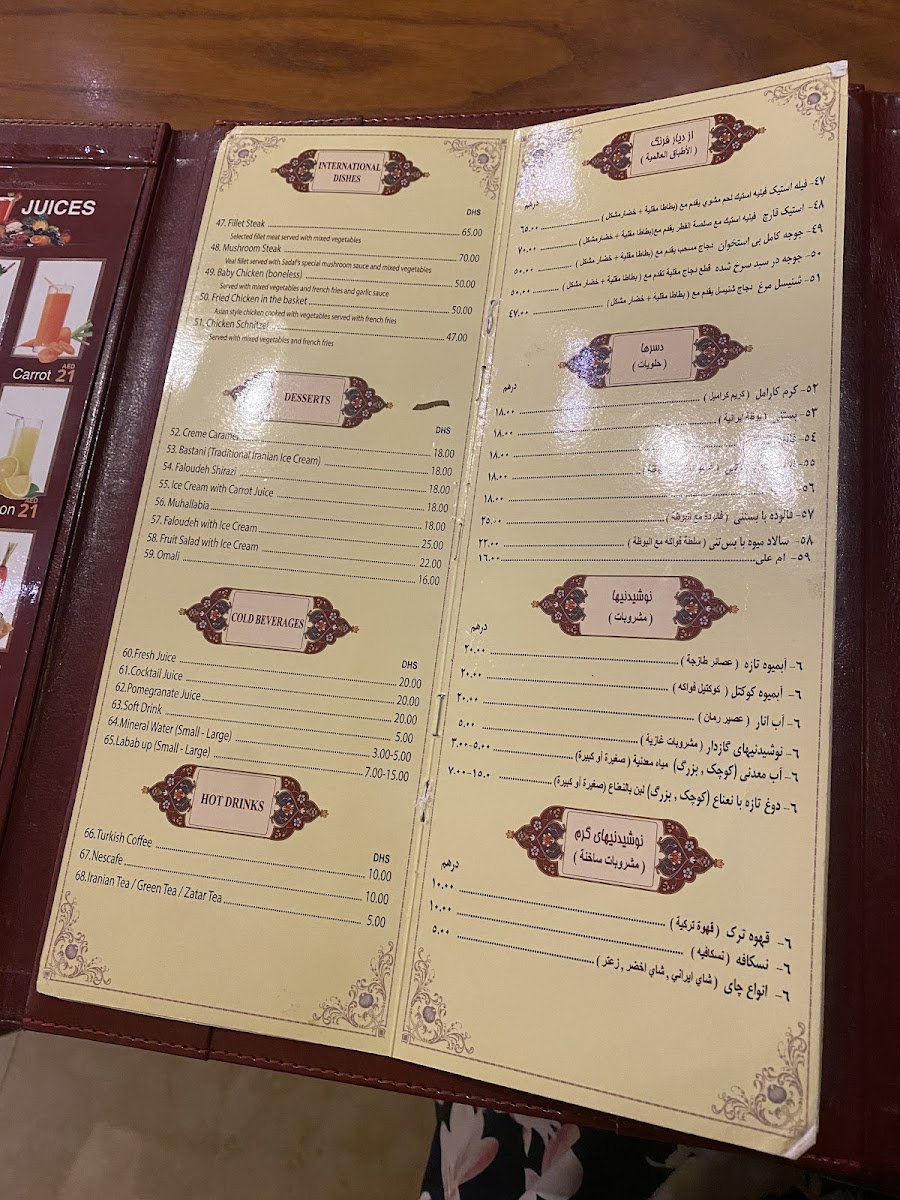 JUICES
Carrot AED 21
AED
on 21
INTERNATIONAL
DISHES
DHS
47. Fillet Steak 65.00
Selected fillet meat served with mixed vegetables
48. Mushroom Steak 70.00
Veal fillet served with Sadaf's special mushroom sauce and mixed vegetables
49. Baby Chicken (boneless) 50.00
Served with mixed vegetables and french fries and garlic sauce
50. Fried Chicken in the basket 50.00
Asian style chicken cooked with vegetables served with french fries
51. Chicken Schnitzel 47.00
Served with mixed vegetables and french fries
DESSERTS
DHS
52. Creme Caramel 18.00
53. Bastani (Traditional Iranian Ice Cream) 18.00
54. Faloudeh Shirazi 18.00
55. Ice Cream with Carrot Juice 18.00
56. Muhallabia 18.00
57. Faloudeh with Ice Cream 25.00
58. Fruit Salad with Ice Cream 22.00
59. Omali 16.00
COLD BEVERAGES
DHS
60.Fresh Juice 20.00
61.Cocktail Juice 20.00
62.Pomegranate Juice 20.00
63.Soft Drink 5.00
64.Mineral Water (Small - Large) 3.00-5.00
65.Labab up (Small - Large) 7.00-15.00
HOT DRINKS
DHS
66.Turkish Coffee 10.00
67.Nescafe 10.00
68.Iranian Tea / Green Tea / Zatar Tea 5.00
از دیار فرنگ
( الأطباق العالمية )
درهم
٤٧- فیله استیک فيليه استيك لحم مشوي يقدم مع (بطاطا مقلية + خضار مشكل ) ٦٥.٠٠
٤٨- استیک قارچ فيليه استيك مع صلصة الفطر يقدم مع(بطاطا مقلية + خضار مشكل ) ٧٠.٠٠
٤٩- جوجه کامل بی استخوان دجاج مسحب يقدم مع ( بطاطا مقلية + خضار مشكل ) ٥٠.٠٠
٥٠- جوجه در سبد سرخ شده قطع دجاج مقلية تقدم مع ( بطاطا مقلية + خضار مشكل ) ٥٠.٠٠
٥١- شنیسل مرغ دجاج شنيسل يقدم مع ( بطاطا مقلية + خضار مشكل ) ٤٧.٠٠
دسرها
( حلويات )
درهم
٥٢- کرم کارامل ( كريم كراميل ) ١٨.٠٠
٥٣- بستنی ( بوظة ايرانية ) ١٨.٠٠
٥٤- ١٨.٠٠
٥٥- ١٨.٠٠
٥٦- ١٨.٠٠
٥٧- فالوده با بستنی ( فالودة مع البوظة ) ٢٥.٠٠
٥٨- سالاد میوه با بس‌تنی ( سلطة فواكه مع البوظة ) ٢٢.٠٠
٥٩- ام علی ١٦.٠٠
نوشیدنیها
( مشروبات )
درهم
٦- آبمیوه تازه ( عصائر طازجة ) ٢٠.٠٠
٦- آبمیوه کوکتل ( كوكتيل فواكه ) ٢٠.٠٠
٦- آب انار ( عصير رمان ) ٢٠.٠٠
٦- نوشیدنیهای گازدار ( مشروبات غازية ) ٥.٠٠
٦- آب معدنی (کوچک , بزرگ) مياه معدنية ( صغيرة أو كبيرة) ٣.٠٠-٥.٠٠
٦- دوغ تازه با نعناع (کوچک , بزرگ) لبن بالنعناع (صغيرة أو كبيرة) ٧.٠٠-١٥.٠
نوشیدنیهای گرم
( مشروبات ساخنة )
درهم
٦- قهوه ترک ( قهوة تركية ) ١٠.٠٠
٦- نسکافه ( نسكافيه ) ١٠.٠٠
٦- انواع چای ( شاي ايراني , شاي اخضر , زعتر ) ٥.٠٠